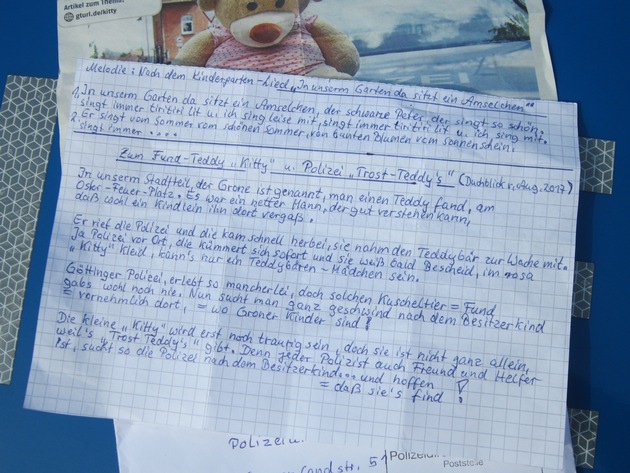 Artikel zum Thema
gturl.de/kitty
Melodie: Nach dem Kindergarten-Lied „In unserm Garten da sitzt ein Amselchen"
1. In unserm Garten da sitzt ein Amselchen, der schwarze Peter, der singt so schön.
singt immer tiritiri lit u. ich sing leise mit, singt immer tiritiri lit u. ich sing mit.
2. Er singt vom Sommer vom schönen Sommer, von bunten Blumen vom Sonnenschein.
singt immer ....
Zum Fund-Teddy „Kitty" u. Polizei „Trost-Teddy's" (Dachblick v. Aug. 2017)
In unserm Stadtteil, der Grone ist genannt, man einen Teddy fand, am
Osker-Feuer-Platz. Es war ein netter Mann, der gut verstehen kann,
daß wohl ein Kindlein ihn dort vergaß.
Er rief die Polizei und die kam schnell herbei, sie nahm den Teddybär zur Wache mit.
Ja Polizei vor Ort, die kümmert sich sofort und sie weiß bald Bescheid, im rosa
„Kitty" Kleid, kann's nur ein Teddybären-Mädchen sein.
Göttinger Polizei, erlebt so mancherlei, doch solchen Kuscheltier=Fund
gabs wohl noch nie. Nun sucht man ganz geschwind nach dem Besitzerkind
= vornehmlich dort, = wo Groner Kinder sind!
Die kleine „Kitty" wird erst noch traurig sein, doch sie ist nicht ganz allein,
weil's „Trost Teddy's" gibt. Denn jeder Polizist auch Freund und Helfer
ist, sucht so die Polizei nach dem Besitzerkind... und hoffen
= daß sie's find!
Polizei
Landstr. 51
Poststelle